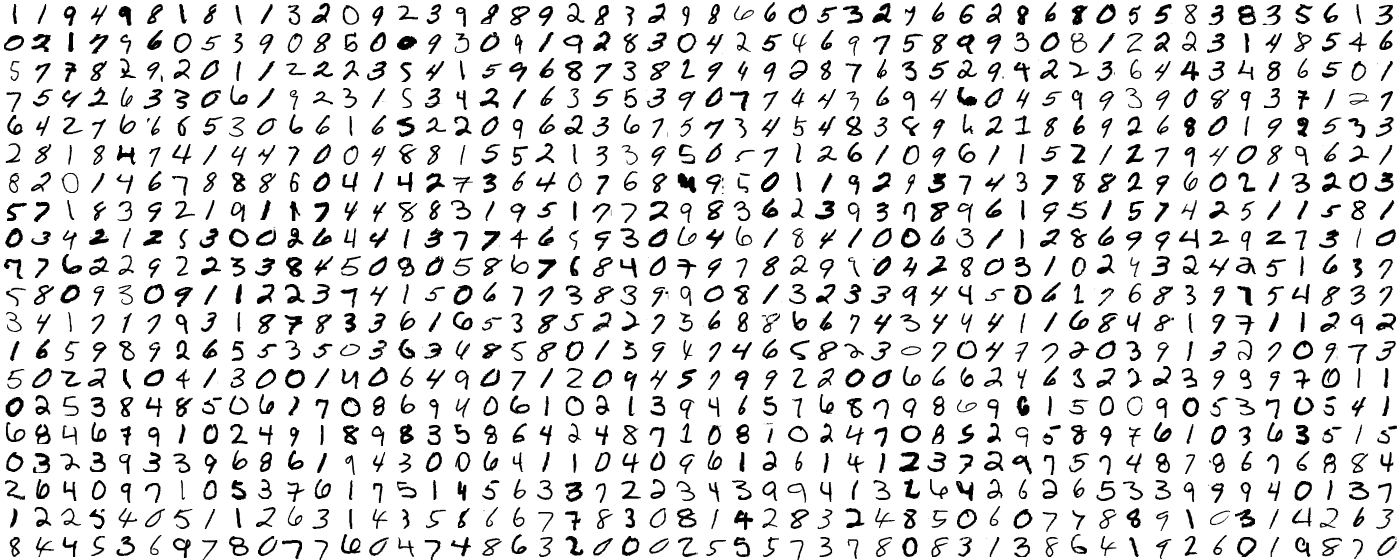 1 1 9 4 9 8 1 8 1 1 3 2 0 9 2 3 9 8 8 9 2 8 3 2 9 8 6 6 0 5 3 2 7 6 6 2 8 6 8 0 5 5 8 3 8 3 5 6 1 3
0 2 1 7 9 6 0 5 3 9 0 8 5 0 0 9 3 0 9 1 9 2 8 3 0 4 2 5 4 6 9 7 5 8 9 9 3 0 8 1 2 2 2 3 1 4 8 5 4 6
5 7 7 8 2 9 2 0 1 1 2 2 2 3 5 4 1 5 9 6 8 7 3 8 2 9 4 9 2 8 7 6 3 5 2 9 4 2 2 3 6 4 4 3 4 8 6 5 0 1
7 5 4 2 6 3 3 0 6 1 9 2 3 1 5 3 4 2 1 6 3 5 5 3 9 0 7 7 4 4 3 6 9 4 6 0 4 5 9 9 3 9 0 8 9 3 7 1 2 7
6 4 2 7 6 6 6 5 3 0 6 6 1 6 5 2 2 0 9 6 2 3 6 7 5 7 3 4 5 4 8 3 8 9 6 2 1 8 6 9 2 6 8 0 1 9 2 5 3 3
2 8 1 8 4 7 4 1 4 4 7 0 0 4 8 8 1 5 5 2 1 3 3 9 5 0 5 7 1 2 6 1 0 9 6 1 1 5 2 1 2 7 9 4 0 8 9 6 2 1
8 2 0 1 4 6 7 8 8 8 6 0 4 1 4 2 7 3 6 4 0 7 6 8 4 9 5 0 1 1 9 2 9 3 7 4 3 7 8 8 2 9 6 0 2 1 3 2 0 3
5 7 1 8 3 9 2 1 9 1 1 7 4 4 8 8 3 1 9 5 1 7 7 2 9 8 3 6 2 3 9 3 7 8 9 6 1 9 5 1 5 7 4 2 5 1 1 5 8 1
0 3 4 2 1 2 5 3 0 0 2 6 4 4 1 3 7 7 4 6 5 9 3 0 6 4 6 1 8 4 1 0 0 6 3 1 1 2 8 6 9 9 4 2 9 2 7 3 1 0
7 7 6 2 2 9 2 2 3 3 8 4 5 0 8 0 5 8 6 7 6 8 4 0 7 9 7 8 2 9 9 0 4 2 8 0 3 1 0 2 9 3 2 4 2 5 1 6 3 7
5 8 0 9 3 0 9 1 1 2 2 3 7 4 1 5 0 6 7 7 3 8 3 9 9 0 8 1 3 2 3 3 9 4 4 5 0 6 1 7 6 8 3 9 7 5 4 8 3 7
3 4 1 7 1 7 9 3 1 8 7 8 3 3 6 1 6 5 3 8 5 2 2 7 3 6 8 8 6 6 7 4 3 4 4 4 1 1 6 8 4 8 1 9 7 1 1 2 9 2
1 6 5 9 8 9 2 6 5 5 3 5 0 3 6 3 4 8 5 8 0 1 3 9 4 7 4 6 5 8 2 3 0 7 0 4 7 7 2 0 3 9 1 3 2 7 0 9 7 3
5 0 2 2 1 0 4 1 3 0 0 1 4 0 6 4 9 0 7 1 2 0 9 4 5 7 9 9 2 2 0 0 6 6 6 2 4 6 3 2 2 2 3 9 9 9 7 0 1 1
0 2 5 3 8 4 8 5 0 6 1 7 0 8 6 9 4 0 6 1 0 2 1 3 9 4 6 5 7 6 8 7 9 8 6 9 6 1 5 0 0 9 0 5 3 7 0 5 4 1
6 8 4 6 7 9 1 0 2 4 9 1 8 9 8 3 5 8 6 4 2 4 8 7 1 0 8 1 0 2 4 7 0 8 5 2 9 5 8 9 7 6 1 0 3 6 3 5 1 5
0 3 2 3 9 3 3 9 6 8 6 1 9 4 3 0 0 6 4 1 1 0 4 0 9 6 1 2 6 1 4 1 2 3 7 2 9 7 5 7 4 8 7 8 6 7 6 8 8 4
2 6 4 0 9 7 1 0 5 3 7 6 1 7 5 1 4 5 6 3 3 7 2 2 3 4 3 9 9 4 1 3 2 6 4 2 6 2 6 5 3 3 9 9 9 4 0 1 3 7
1 2 2 5 4 0 5 1 1 2 6 3 1 4 3 5 8 6 6 7 7 8 3 0 8 1 4 2 8 3 2 4 8 5 0 6 0 7 7 8 8 9 1 0 3 1 4 2 6 3
8 4 4 5 3 6 9 7 8 0 7 7 6 0 4 7 4 8 6 3 2 0 0 0 2 5 5 5 7 3 7 8 0 8 3 1 3 8 6 4 1 9 2 6 0 1 9 8 7 1